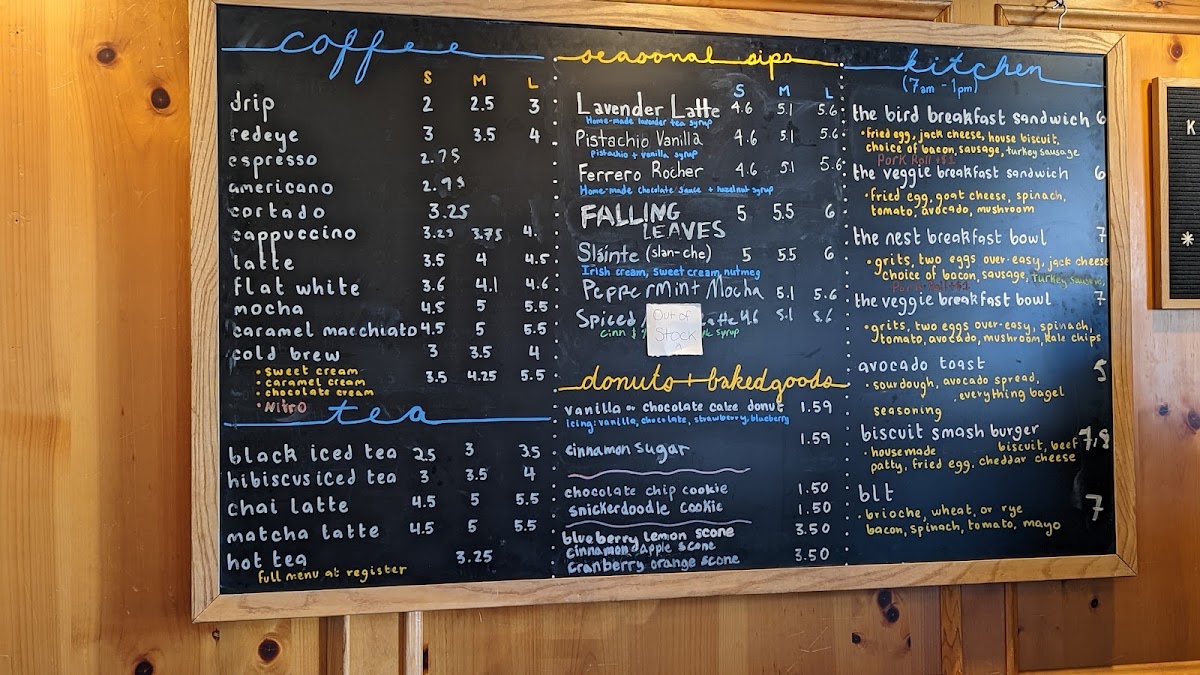 coffee
S M L
drip 2 2.5 3
redeye 3 3.5 4
espresso 2.75
americano 2.95
cortado 3.25
cappuccino 3.25 3.75 4.
latte 3.5 4 4.5
flat white 3.6 4.1 4.6
mocha 4.5 5 5.5
caramel macchiato 4.5 5 5.5
cold brew 3 3.5 4
• sweet cream
• caramel cream 3.5 4.25 5.5
• chocolate cream
• Nitro
tea
black iced tea 2.5 3 3.5
hibiscus iced tea 3 3.5 4
chai latte 4.5 5 5.5
matcha latte 4.5 5 5.5
hot tea 3.25
full menu at register
seasonal sips
S M L
Lavender Latte 4.6 5.1 5.6
Home-made lavender tea syrup
Pistachio Vanilla 4.6 5.1 5.6
pistachio + vanilla syrup
Ferrero Rocher 4.6 5.1 5.6
Home-made chocolate sauce + hazelnut syrup
FALLING 5 5.5 6
LEAVES
Sláinte (slan-che) 5 5.5 6
Irish cream, sweet cream, nutmeg
Peppermint Mocha 5.1 5.6
Spiced 4.6 5.1 5.6
syrup
Out of
Stock
donuts + baked goods
vanilla or chocolate cake donut 1.59
icing: vanilla, chocolate, strawberry, blueberry
cinnamon sugar 1.59
chocolate chip cookie 1.50
snickerdoodle cookie 1.50
blueberry lemon scone 3.50
cinnamon apple scone
cranberry orange scone 3.50
kitchen
(7am - 1pm)
the bird breakfast sandwich 6
• fried egg, jack cheese, house biscuit,
choice of bacon, sausage, turkey sausage
Pork Roll +$1
the veggie breakfast sandwich 6
• fried egg, goat cheese, spinach,
tomato, avocado, mushroom
the nest breakfast bowl 7
• grits, two eggs over-easy, jack cheese
choice of bacon, sausage, turkey sausage,
Pork Roll +$1
the veggie breakfast bowl 7
• grits, two eggs over-easy, spinach,
tomato, avocado, mushroom, kale chips
avocado toast 5
• sourdough, avocado spread,
everything bagel
seasoning
biscuit smash burger 7,8
• housemade biscuit, beef
patty, fried egg, cheddar cheese
blt 7
• brioche, wheat, or rye
bacon, spinach, tomato, mayo
K
*